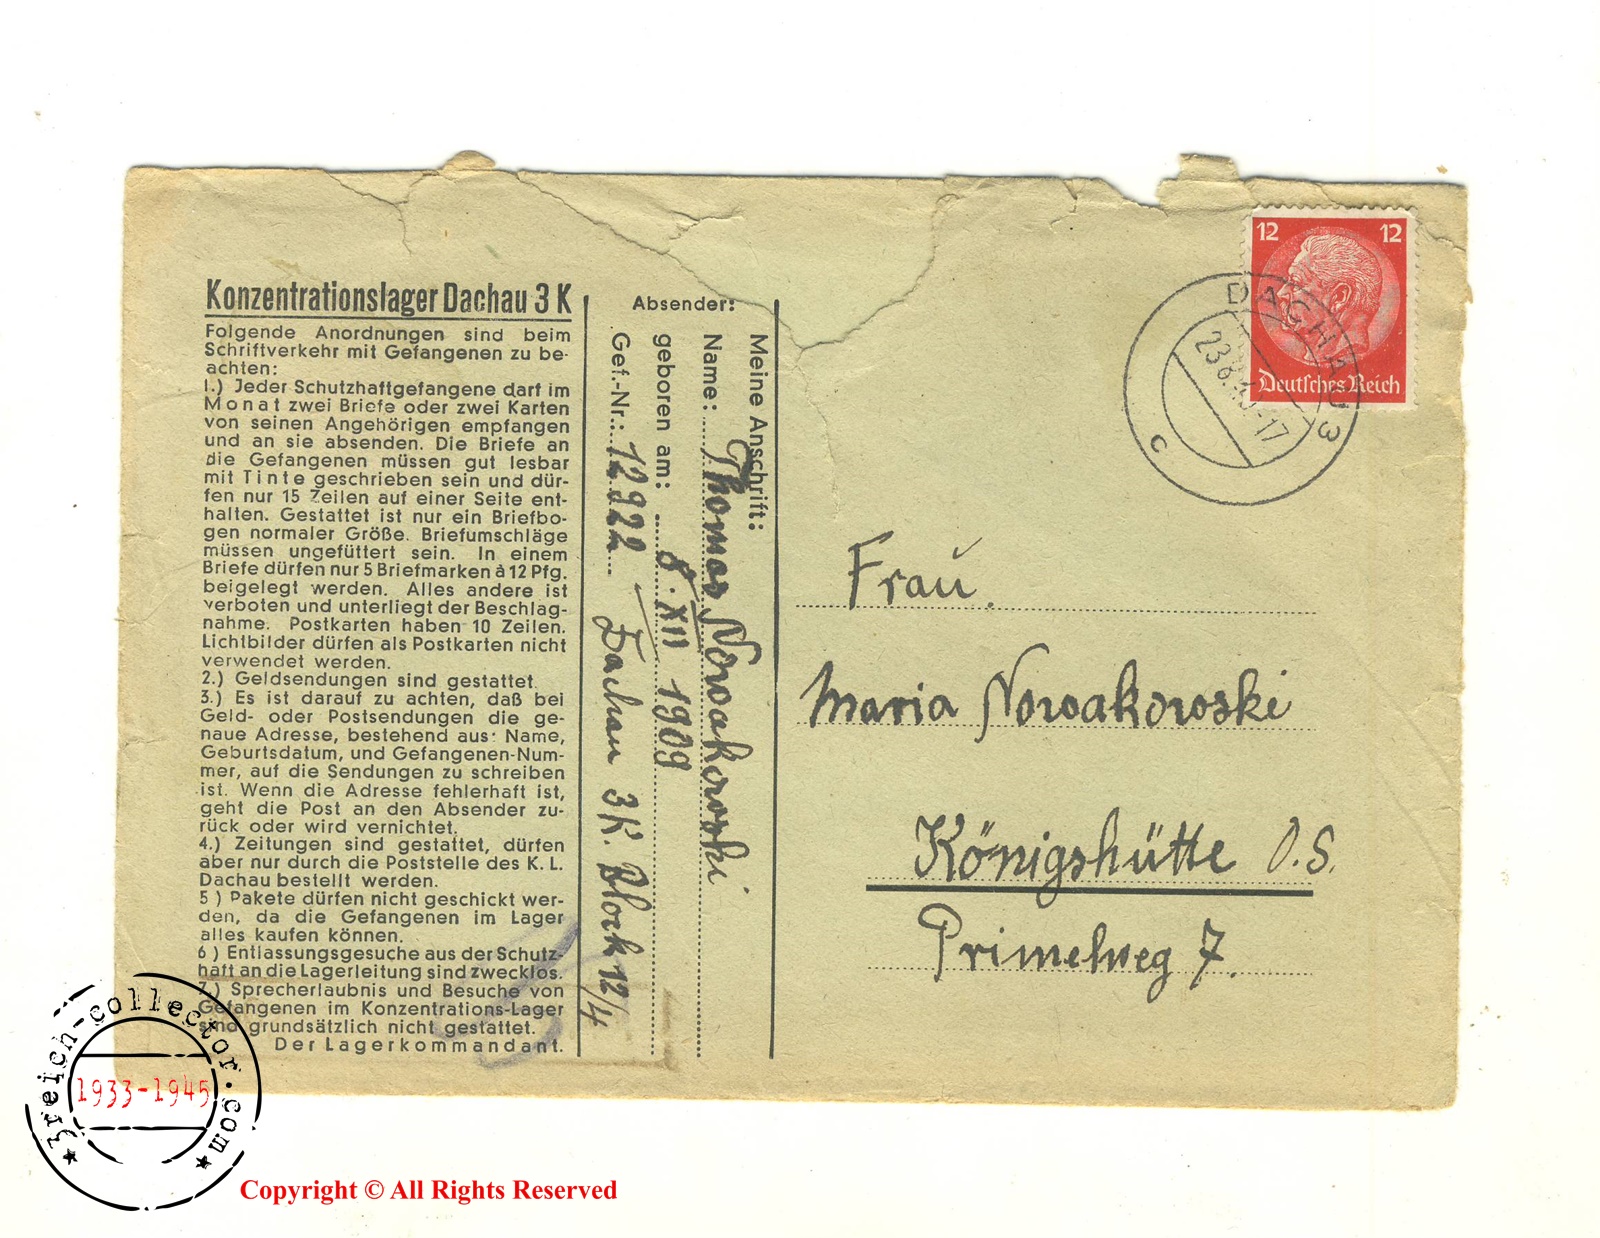 Konzentrationslager Dachau 3 K
Folgende Anordnungen sind beim
Schriftverkehr mit Gefangenen zu be-
achten:
1.) Jeder Schutzhaftgefangene darf im
Monat zwei Briefe oder zwei Karten
von seinen Angehörigen empfangen
und an sie absenden. Die Briefe an
die Gefangenen müssen gut lesbar
mit Tinte geschrieben sein und dür-
fen nur 15 Zeilen auf einer Seite ent-
halten. Gestattet ist nur ein Briefbo-
gen normaler Größe. Briefumschläge
müssen ungefüttert sein. In einem
Briefe dürfen nur 5 Briefmarken à 12 Pfg.
beigelegt werden. Alles andere ist
verboten und unterliegt der Beschlag-
nahme. Postkarten haben 10 Zeilen.
Lichtbilder dürfen als Postkarten nicht
verwendet werden.
2.) Geldsendungen sind gestattet.
3.) Es ist darauf zu achten, daß bei
Geld- oder Postsendungen die ge-
naue Adresse, bestehend aus: Name,
Geburtsdatum, und Gefangenen-Num-
mer, auf die Sendungen zu schreiben
ist. Wenn die Adresse fehlerhaft ist,
geht die Post an den Absender zu-
rück oder wird vernichtet.
4.) Zeitungen sind gestattet, dürfen
aber nur durch die Poststelle des K. L.
Dachau bestellt werden.
5) Pakete dürfen nicht geschickt wer-
den, da die Gefangenen im Lager
alles kaufen können.
6) Entlassungsgesuche aus der Schutz-
haft an die Lagerleitung sind zwecklos.
7.) Sprecherlaubnis und Besuche von
Gefangenen im Konzentrations-Lager
sind grundsätzlich nicht gestattet.
Der Lagerkommandant.
Absender:
Meine Anschrift:
Name: Thomas Nowakowski
geboren am: 8. XII 1909
Gef.-Nr.: 12922 Dachau 3K. Block 12/4
12 12
Deutsches Reich
DACHAU 3
c
Frau.
Maria Nowakowski
Königshütte O.S.
Primelweg 7.
3reich-collector.com
1933-1945
Copyright © All Rights Reserved